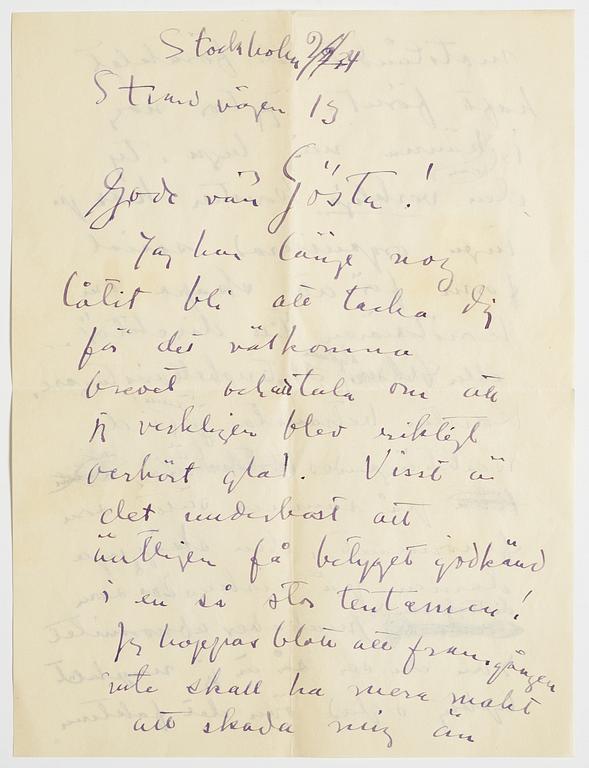 Stockholm
Strandvägen 19
Gode vän Gösta!
Jag har länge nog
låtit bli att tacka dig
för det välkomna
brevet och att tala om att
jag verkligen blev riktigt
oerhört glad. Visst är
det underbart att
äntligen få betyget godkänd
i en så stor tentamen!
Jag hoppas blott att framgången
inte skall ha mera makt
att skada mig än